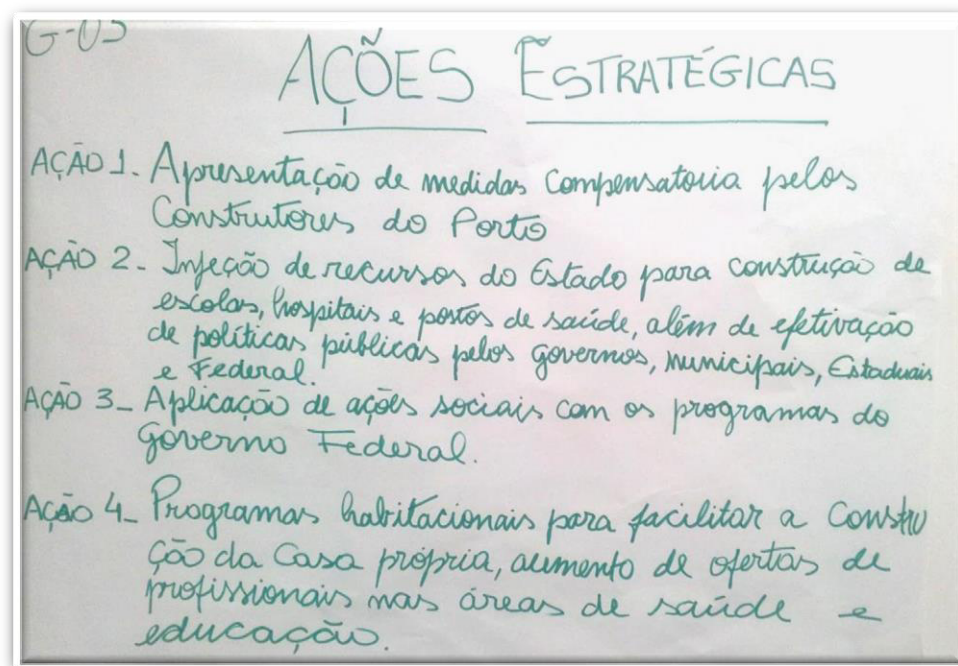 G-05
AÇÕES ESTRATÉGICAS
AÇÃO 1. Apresentação de medidas Compensatoria pelos
Construtores do Porto
AÇÃO 2- Injeção de recursos do Estado para construção de
escolas, hospitais e postos de saúde, além de efetivação
de políticas públicas pelos governos, municipais, Estaduais
e Federal.
AÇÃO 3- Aplicação de ações sociais com os programas do
governo Federal.
AÇÃO 4- Programas habitacionais para facilitar a Constru
ção da Casa própria, aumento de ofertas de
profissionais nas áreas de saúde e
educação.